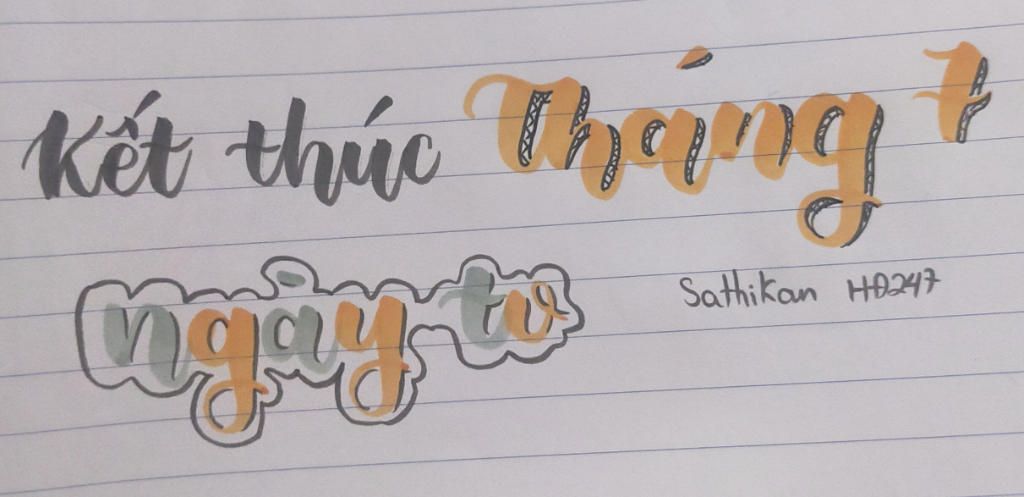 Kết thúc Tháng 7
ngày tư
Sathikan HĐ247